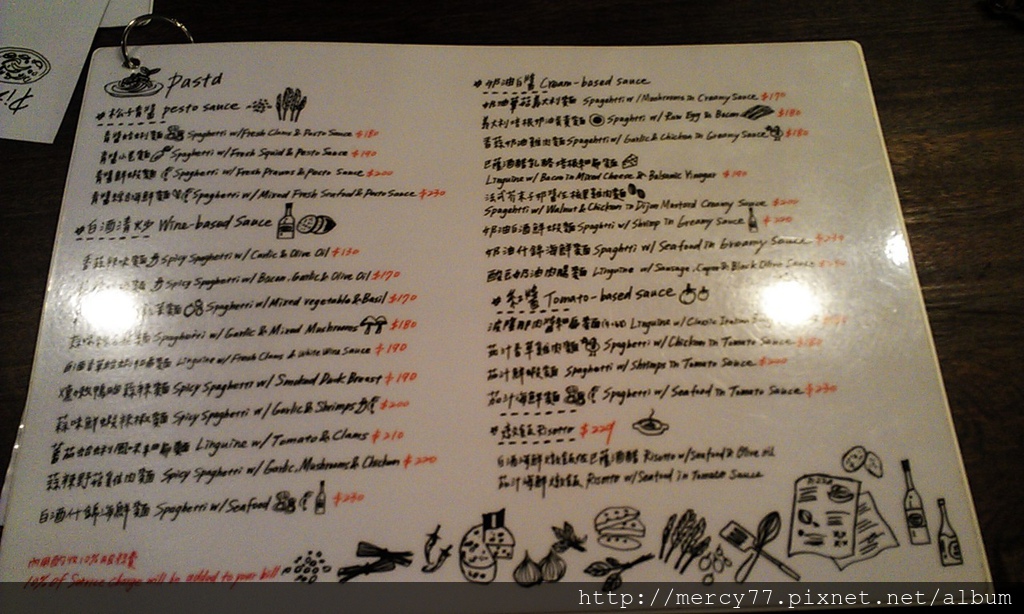 Pasta
松子青醬 pesto sauce
青醬蛤蜊麵 Spaghetti w/Fresh Clams & Pesto Sauce $180
Spaghetti w/Fresh Squid & Pesto Sauce $190
青醬鮮蝦麵 Spaghetti w/Fresh Prawns & Pesto Sauce $200
青醬綜合海鮮麵 Spaghetti w/Mixed Fresh Seafood & Pesto Sauce $230
白酒清炒 Wine-based Sauce
香蒜辣味麵 Spicy Spaghetti w/ Garlic & Olive Oil $130
Spicy Spaghetti w/ Bacon, Garlic & Olive Oil $170
Spaghetti w/Mixed vegetable & Basil $170
Spaghetti w/ Garlic & Mixed Mushrooms $180
Linguine w/ Fresh Clams & White Wine Sauce $190
煙燻鴨胸蒜辣麵 Spicy Spaghetti w/ Smoked Duck Breast $190
蒜味鮮蝦辣椒麵 Spicy Spaghetti w/ Garlic & Shrimps $200
Linguine w/ Tomato & Clams $210
蒜辣野菇雞肉麵 Spicy Spaghetti w/ Garlic, Mushrooms & Chicken $220
白酒什錦海鮮麵 Spaghetti w/ Seafood $230
內用酌收10%服務費
10% of Service charge will be added to your bill
奶油白醬 Cream-based sauce
奶油蘑菇義大利麵 Spaghetti w/ Mushrooms in Creamy Sauce $170
Spaghetti w/ Raw Egg & Bacon $180
蒜苗奶油雞肉麵 Spaghetti w/ Garlic & Chicken in Creamy Sauce $180
Linguine w/ Bacon in Mixed Cheese & Balsamic Vinegar $190
Spaghetti w/ Walnut & Chicken in Dijon Mustard Creamy Sauce $200
奶油白酒鮮蝦麵 Spaghetti w/ Shrimp in Creamy Sauce $220
奶油什錦海鮮麵 Spaghetti w/ Seafood in Creamy Sauce $230
酸豆奶油肉腸麵 Linguine w/ Sausage, Caper & Black Olive Sauce
紅醬 Tomato-based sauce
波隆那肉醬 Linguine w/ Classic Italian
茄汁香草雞肉麵 Spaghetti w/ Chicken in Tomato Sauce $180
茄汁鮮蝦麵 Spaghetti w/ Shrimps in Tomato Sauce $220
茄汁海鮮麵 Spaghetti w/ Seafood in Tomato Sauce $230
燉飯 Risotto $229
白酒海鮮燉飯佐巴薩米醋 Risotto w/ Seafood & Olive oil
茄汁海鮮燉飯 Risotto w/ Seafood in Tomato Sauce
http://mercy77.pixnet.net/album